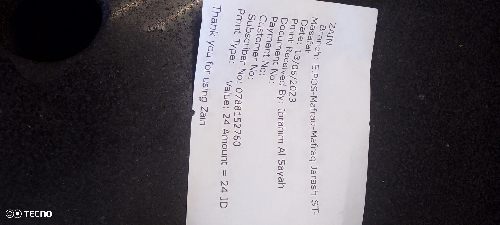 ZAIN
Branch: E-POS-Mafraq-Mafraq Jarash ST-
Masafah
Date: 13/05/2023
Pmnt Received By: Ibrahim Al Sayah
Document No:
Payment No:
Customer No:
Subscriber No: 0788152760
Pmnt Type: Value: 24 Amount = 24 JD
Thank you for using Zain
TECNO